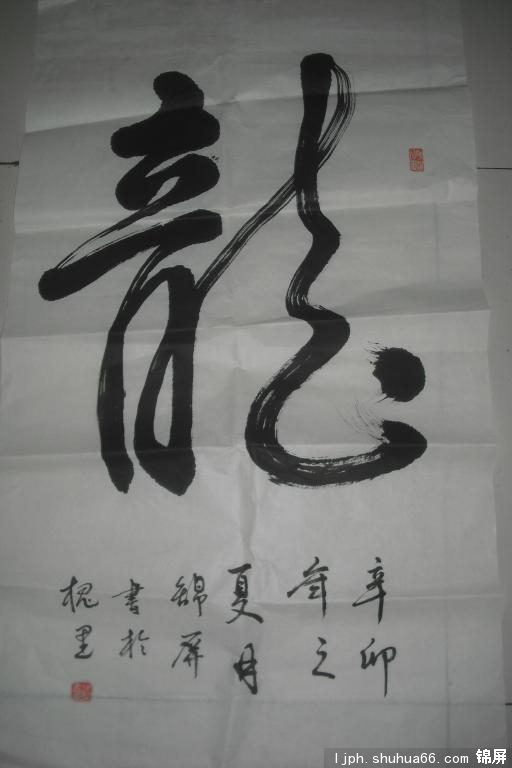 龍
辛卯
年之
夏月
錦屏
書於
槐里
ljph.shuhua66.com 锦屏